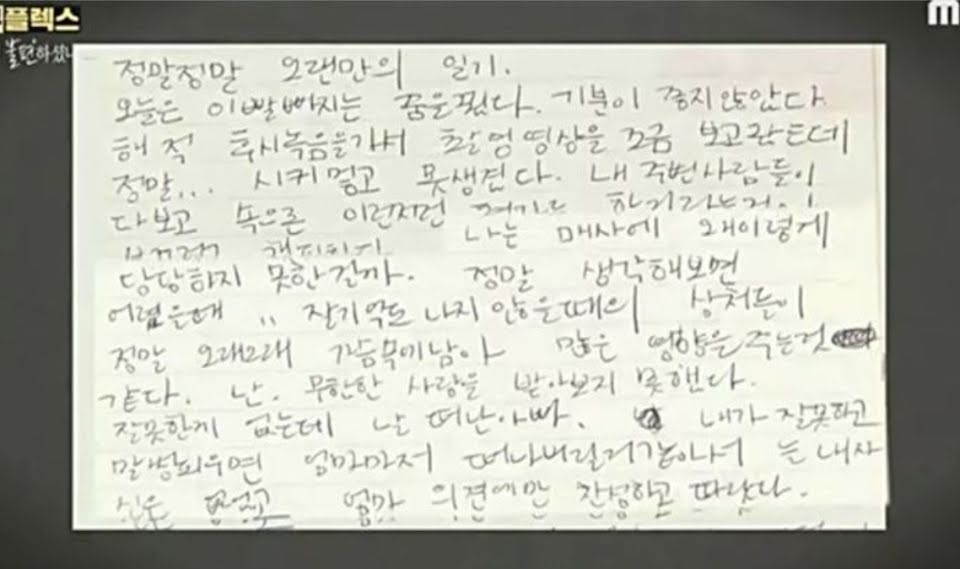 플렉스
불편하셨나
정말정말 오랜만의 일기.
오늘은 이빨빠지는 꿈을꿨다. 기분이 좋지않았다
해적 후시녹음을가서 촬영영상을 조금 보고왔는데
정말... 시커멓고 못생겼다. 내 주변사람들이
다보고 속으론 이런저런
나는 매사에 왜이렇게
당당하지 못한걸까. 정말 생각해보면
어렸을때 .. 잘기억도 나지 않을때의 상처들이
정말 오래오래 가슴속에남아 많은 영향을 주는것
같다. 난. 무한한 사랑을 받아보지 못했다.
잘못한게 없는데 날 떠난아빠. 내가 잘못하고
말썽피우면 엄마마저 떠나버릴거같아서 는 내자
신은 없었고 엄마 의견에만 찬성하고 따랐다.